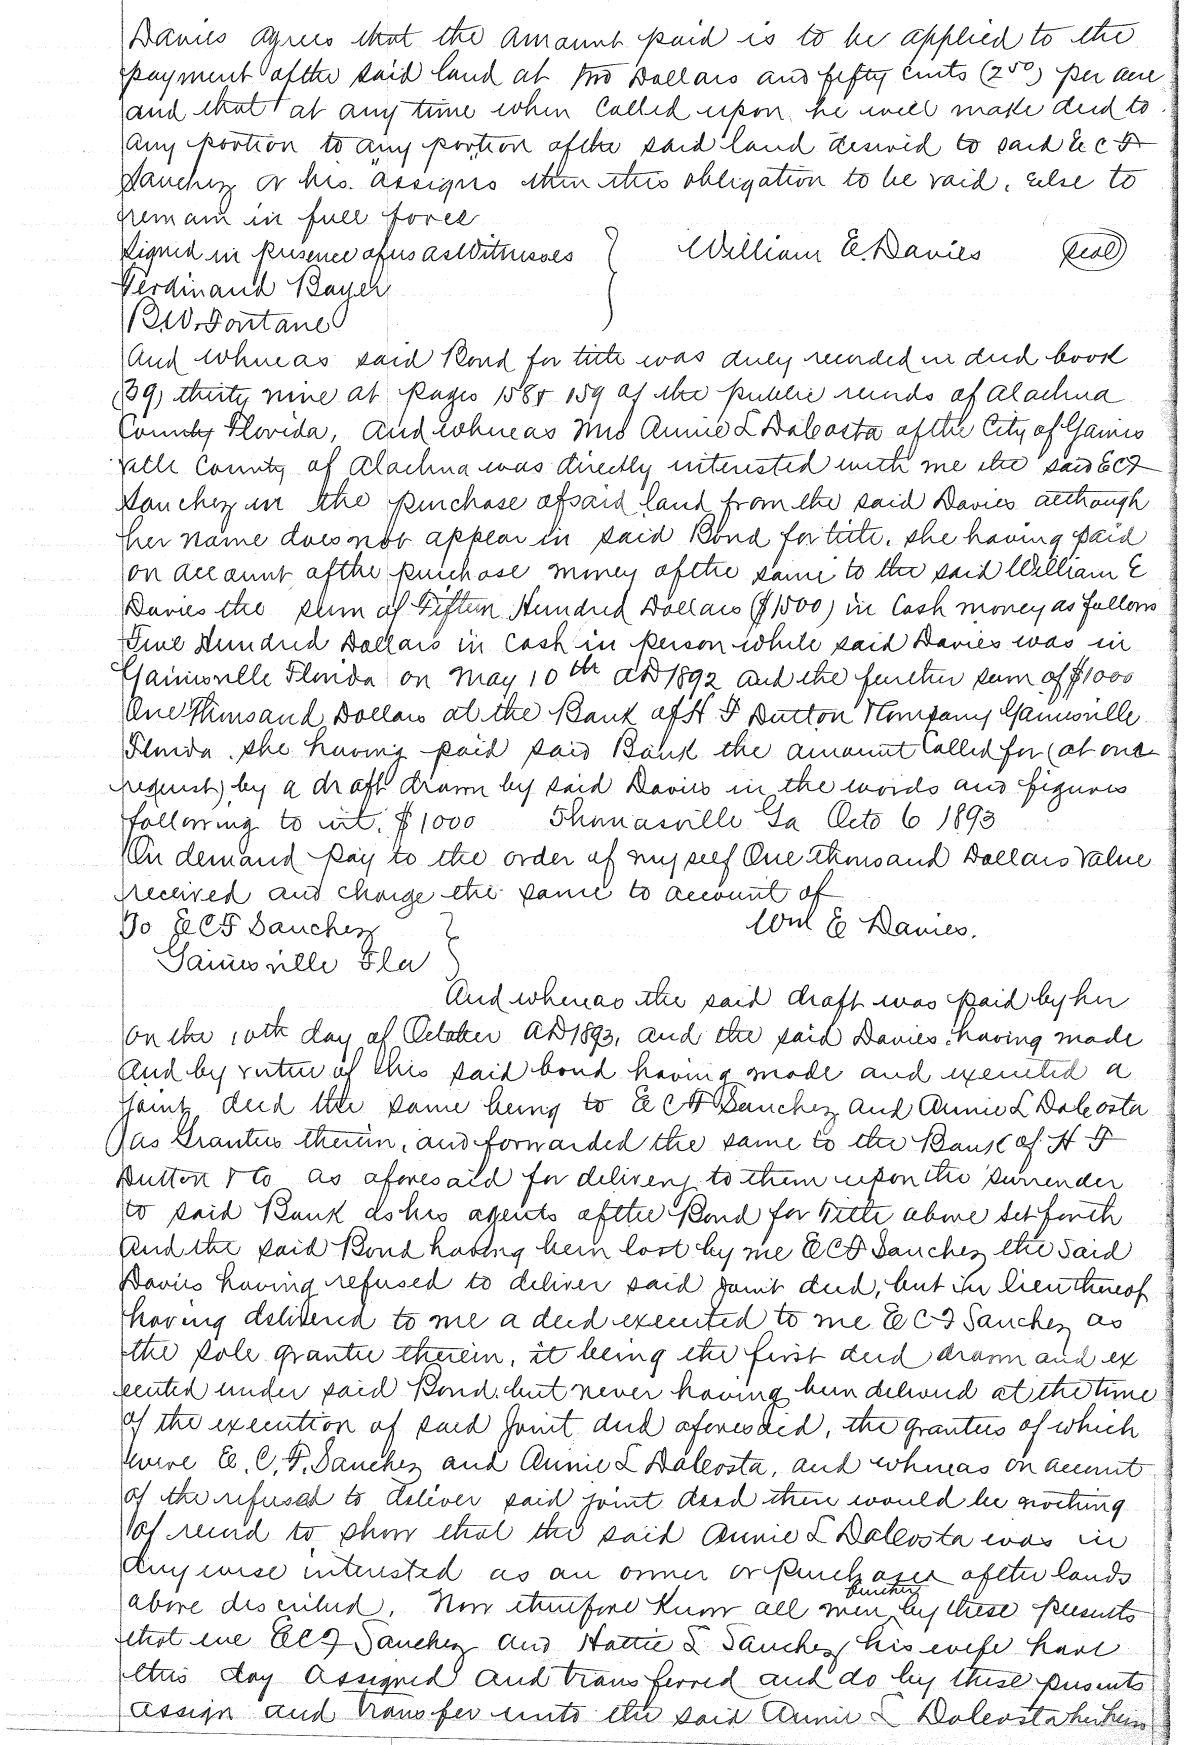 Davies agrees that the amount paid is to be applied to the
payment of the said land at two Dollars and fifty cents (2⁵⁰) per acre
and that at any time when called upon he will make deed to
any portion to "any portion" of the said land desired to said E C F
Sanchez or his assigns then this obligation to be void, else to
remain in full force
Signed in presence of us as Witnesses } William E. Davies (seal)
Ferdinand Bayer
B.W. Fontane
And whereas said Bond for title was duly recorded in deed book
(39) thirty nine at pages 158 & 159 of the public records of Alachua
County Florida, and whereas Mrs Annie L DaCosta of the City of Gaines
ville County of Alachua was directly interested with me the said E C F
Sanchez in the purchase of said land from the said Davies although
her name does not appear in said Bond for title, she having paid
on account of the purchase money of the same to the said William E
Davies the sum of Fifteen Hundred Dollars ($1500) in cash money as follows
Five Hundred Dollars in cash in person while said Davies was in
Gainesville Florida on May 10th AD 1892 and the further sum of $1000
One Thousand Dollars at the Bank of H F Dutton & Company Gainesville
Florida she having paid said Bank the amount called for (at our
request) by a draft drawn by said Davies in the words and figures
following to wit. $1000 Thomasville Ga Octo 6 1893
On demand pay to the order of myself One thousand Dollars Value
received and charge the same to account of
To E C F Sanchez } Wm E Davies.
Gainesville Fla
And whereas the said draft was paid by her
on the 10th day of October AD 1893, and the said Davies having made
and by virtue of this said bond having made and executed a
joint deed the same being to E C F Sanchez and Annie L DaCosta
as Grantees therein, and forwarded the same to the Bank of H F
Dutton & Co as aforesaid for delivery to them upon the surrender
to said Bank as his agents of the Bond for Title above set forth
and the said Bond having been lost by me E C F Sanchez the said
Davies having refused to deliver said joint deed, but in lieu thereof
having delivered to me a deed executed to me E C F Sanchez as
the sole grantee therein, it being the first deed drawn and ex
ecuted under said Bond but never having been delivered at the time
of the execution of said joint deed aforesaid, the grantees of which
were E. C. F. Sanchez and Annie L DaCosta, and whereas on account
of the refusal to deliver said joint deed there would be nothing
of record to show that the said Annie L DaCosta was in
anywise interested as an owner or purchaser of the lands
above described. Now therefore Know all men by these presents
that we E C F Sanchez and Hattie L Sanchez his wife have
this day assigned and transferred and do by these presents
assign and transfer unto the said Annie L DaCosta her heirs